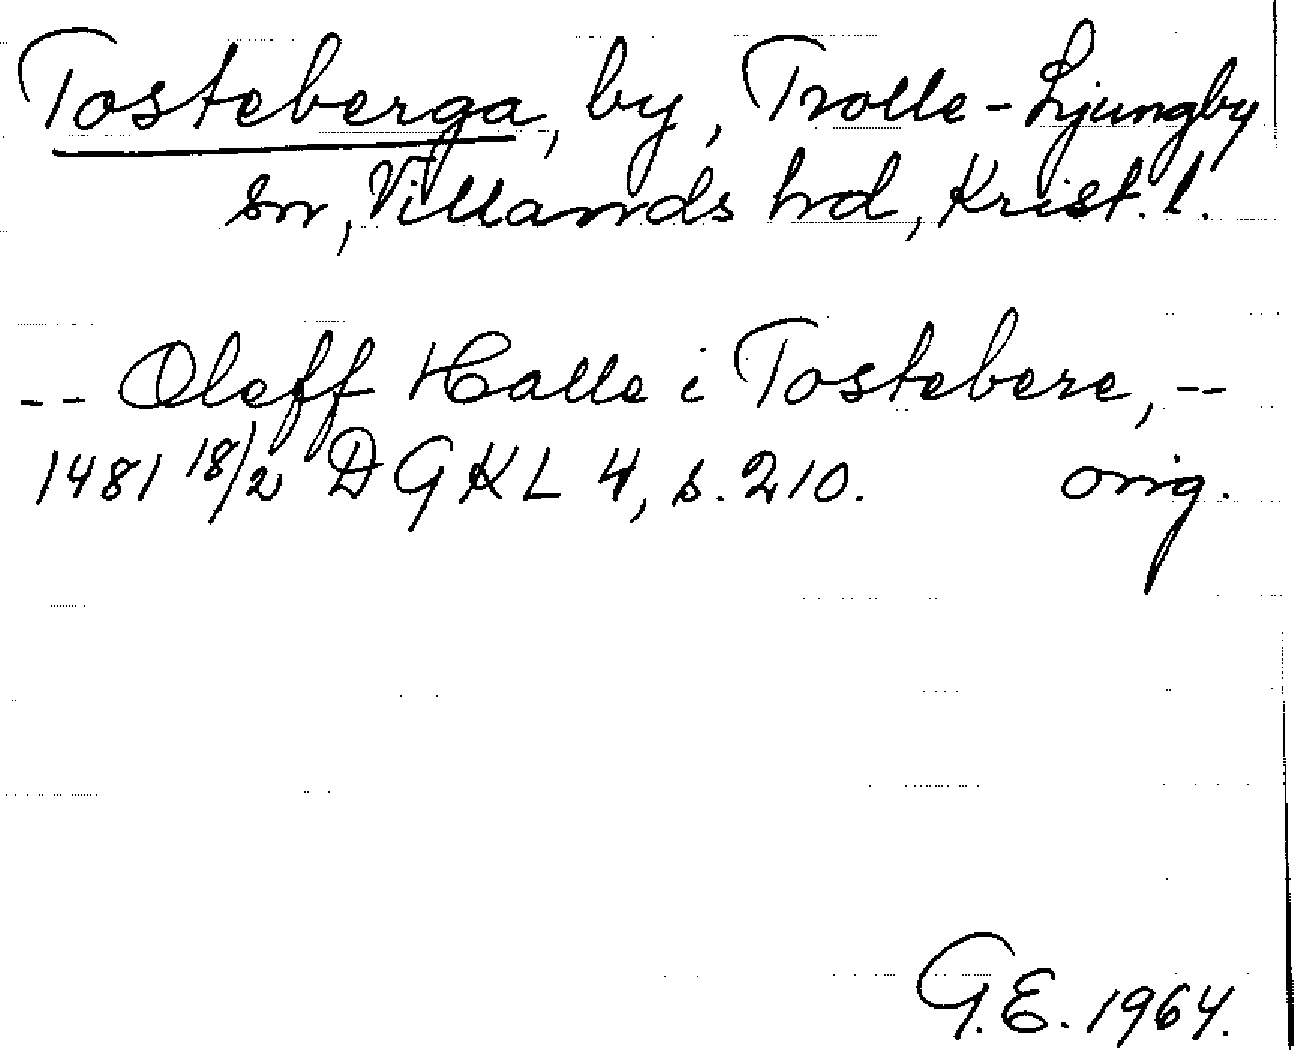 Tosteberga, by, Trolle-Ljungby
sn, Villands hd, Krist. l.
-- Oleff Halle i Tostebere, --
1481 18/2 DGKL 4, s. 210. orig.
G.E. 1964.